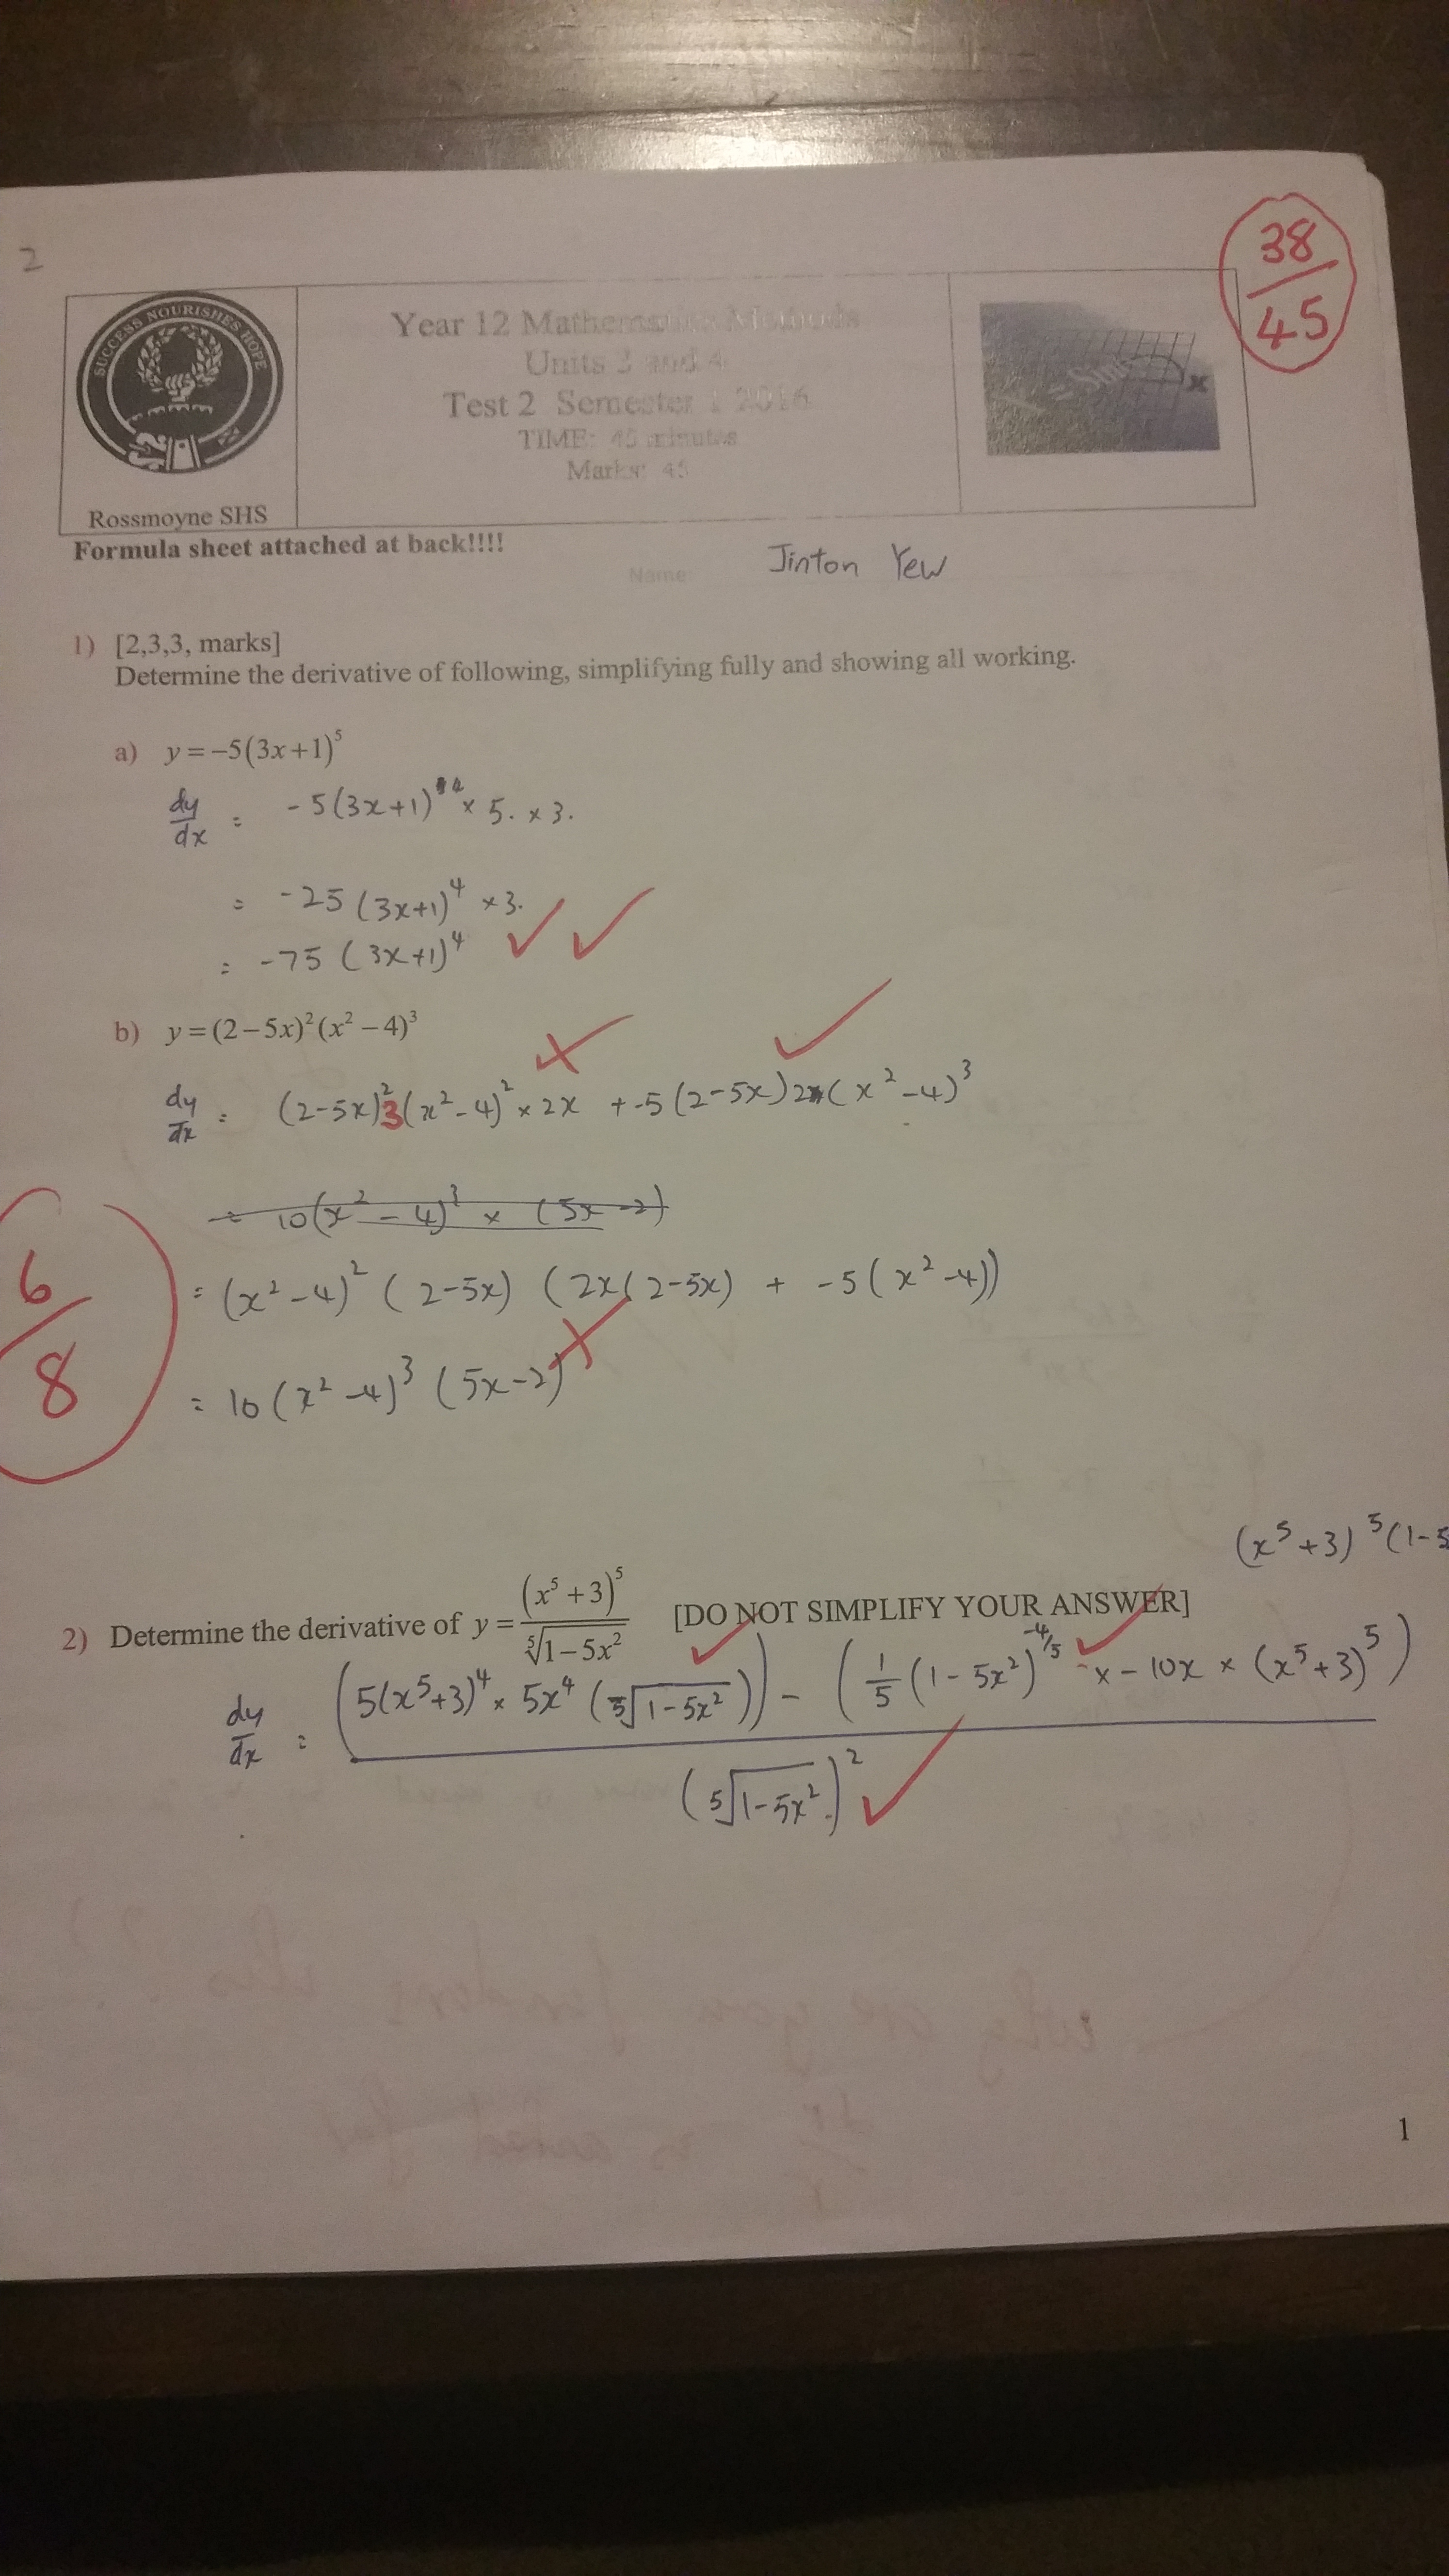 2
38
45
SUCCESS NOURISHES HOPE
Rossmoyne SHS
Year 12 Mathematics Methods
Units 3 and 4
Test 2 Semester 1 2016
TIME: 45 minutes
Marks: 45
x
Formula sheet attached at back!!!!
Name: Jinton Yew
1) [2,3,3, marks]
Determine the derivative of following, simplifying fully and showing all working.
a) y = −5(3x+1)^5
dy/dx = -5(3x+1)^4 × 5. × 3.
= -25 (3x+1)^4 × 3.
= -75 (3x+1)^4
b) y = (2−5x)^2(x^2−4)^3
dy/dx = (2-5x)^2 3(x^2-4)^2 × 2x + -5(2-5x)2(x^2-4)^3
= 10(x^2-4)^3 × (5x-2)
= (x^2-4)^2 (2-5x) (2x(2-5x) + -5(x^2-4))
= 10(x^2-4)^3 (5x-2)
6
8
(x^5+3)^5(1-5
2) Determine the derivative of y = (x^5+3)^5 / ⁵√(1−5x^2) [DO NOT SIMPLIFY YOUR ANSWER]
dy/dx = (5(x^5+3)^4 × 5x^4 (⁵√(1-5x^2))) - (1/5 (1-5x^2)^-4/5 × -10x × (x^5+3)^5)
(⁵√(1-5x^2))^2
1